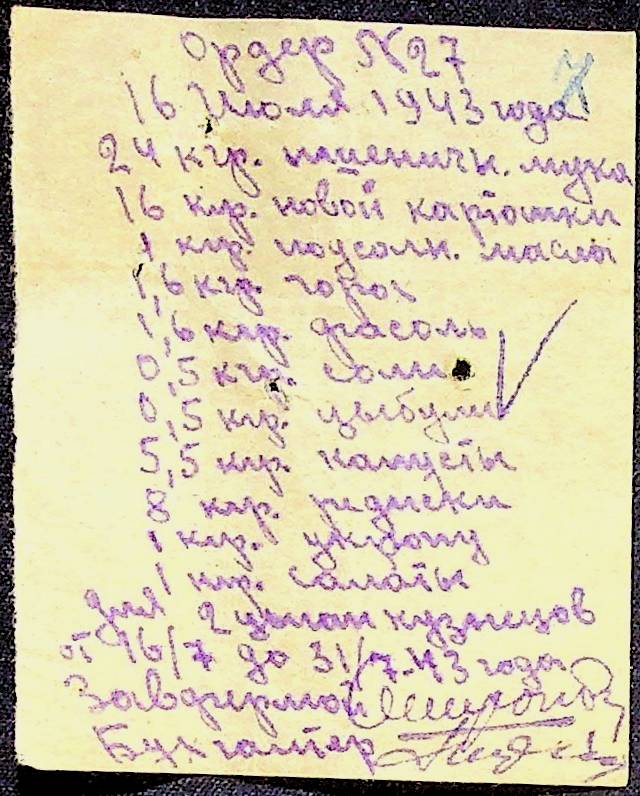 Ордер №27
7
16 Июля 1943 года
24 кгр. пшеничн. мука
16 кгр. новой картошки
1 кгр. подсолн. масла
1,6 кгр. горох
1,6 кгр. фасоль
0,5 кгр. соли
0,5 кгр. цыбули
5,5 кгр. капусты
8 кгр. редиски
1 кгр. укропу
1 кгр. салаты
для 2 цыган кузнецов
от 16/7 до 31/7-43 года
Завфермой
Бухгалтер